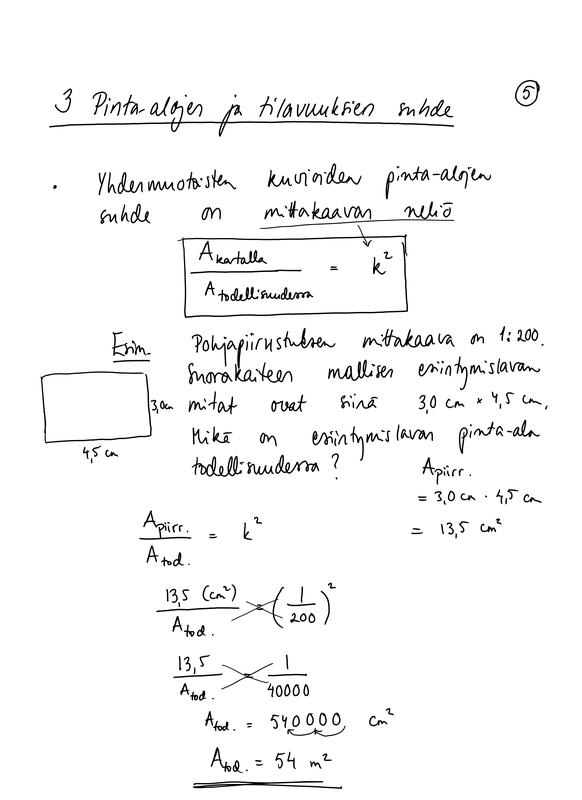 3 Pinta-alojen ja tilavuuksien suhde
5
• Yhdenmuotoisten kuvioiden pinta-alojen
suhde on mittakaavan neliö
A kartalla / A todellisuudessa = k²
Esim. Pohjapiirustuksen mittakaava on 1:200.
Suorakaiteen mallisen esiintymislavan
mitat ovat siinä 3,0 cm × 4,5 cm.
3,0 cm
4,5 cm
Mikä on esiintymislavan pinta-ala
todellisuudessa?
A piirr.
= 3,0 cm · 4,5 cm
= 13,5 cm²
A piirr. / A tod. = k²
13,5 (cm²) / A tod. = (1/200)²
13,5 / A tod. = 1 / 40000
A tod. = 540000 cm²
A tod. = 54 m²